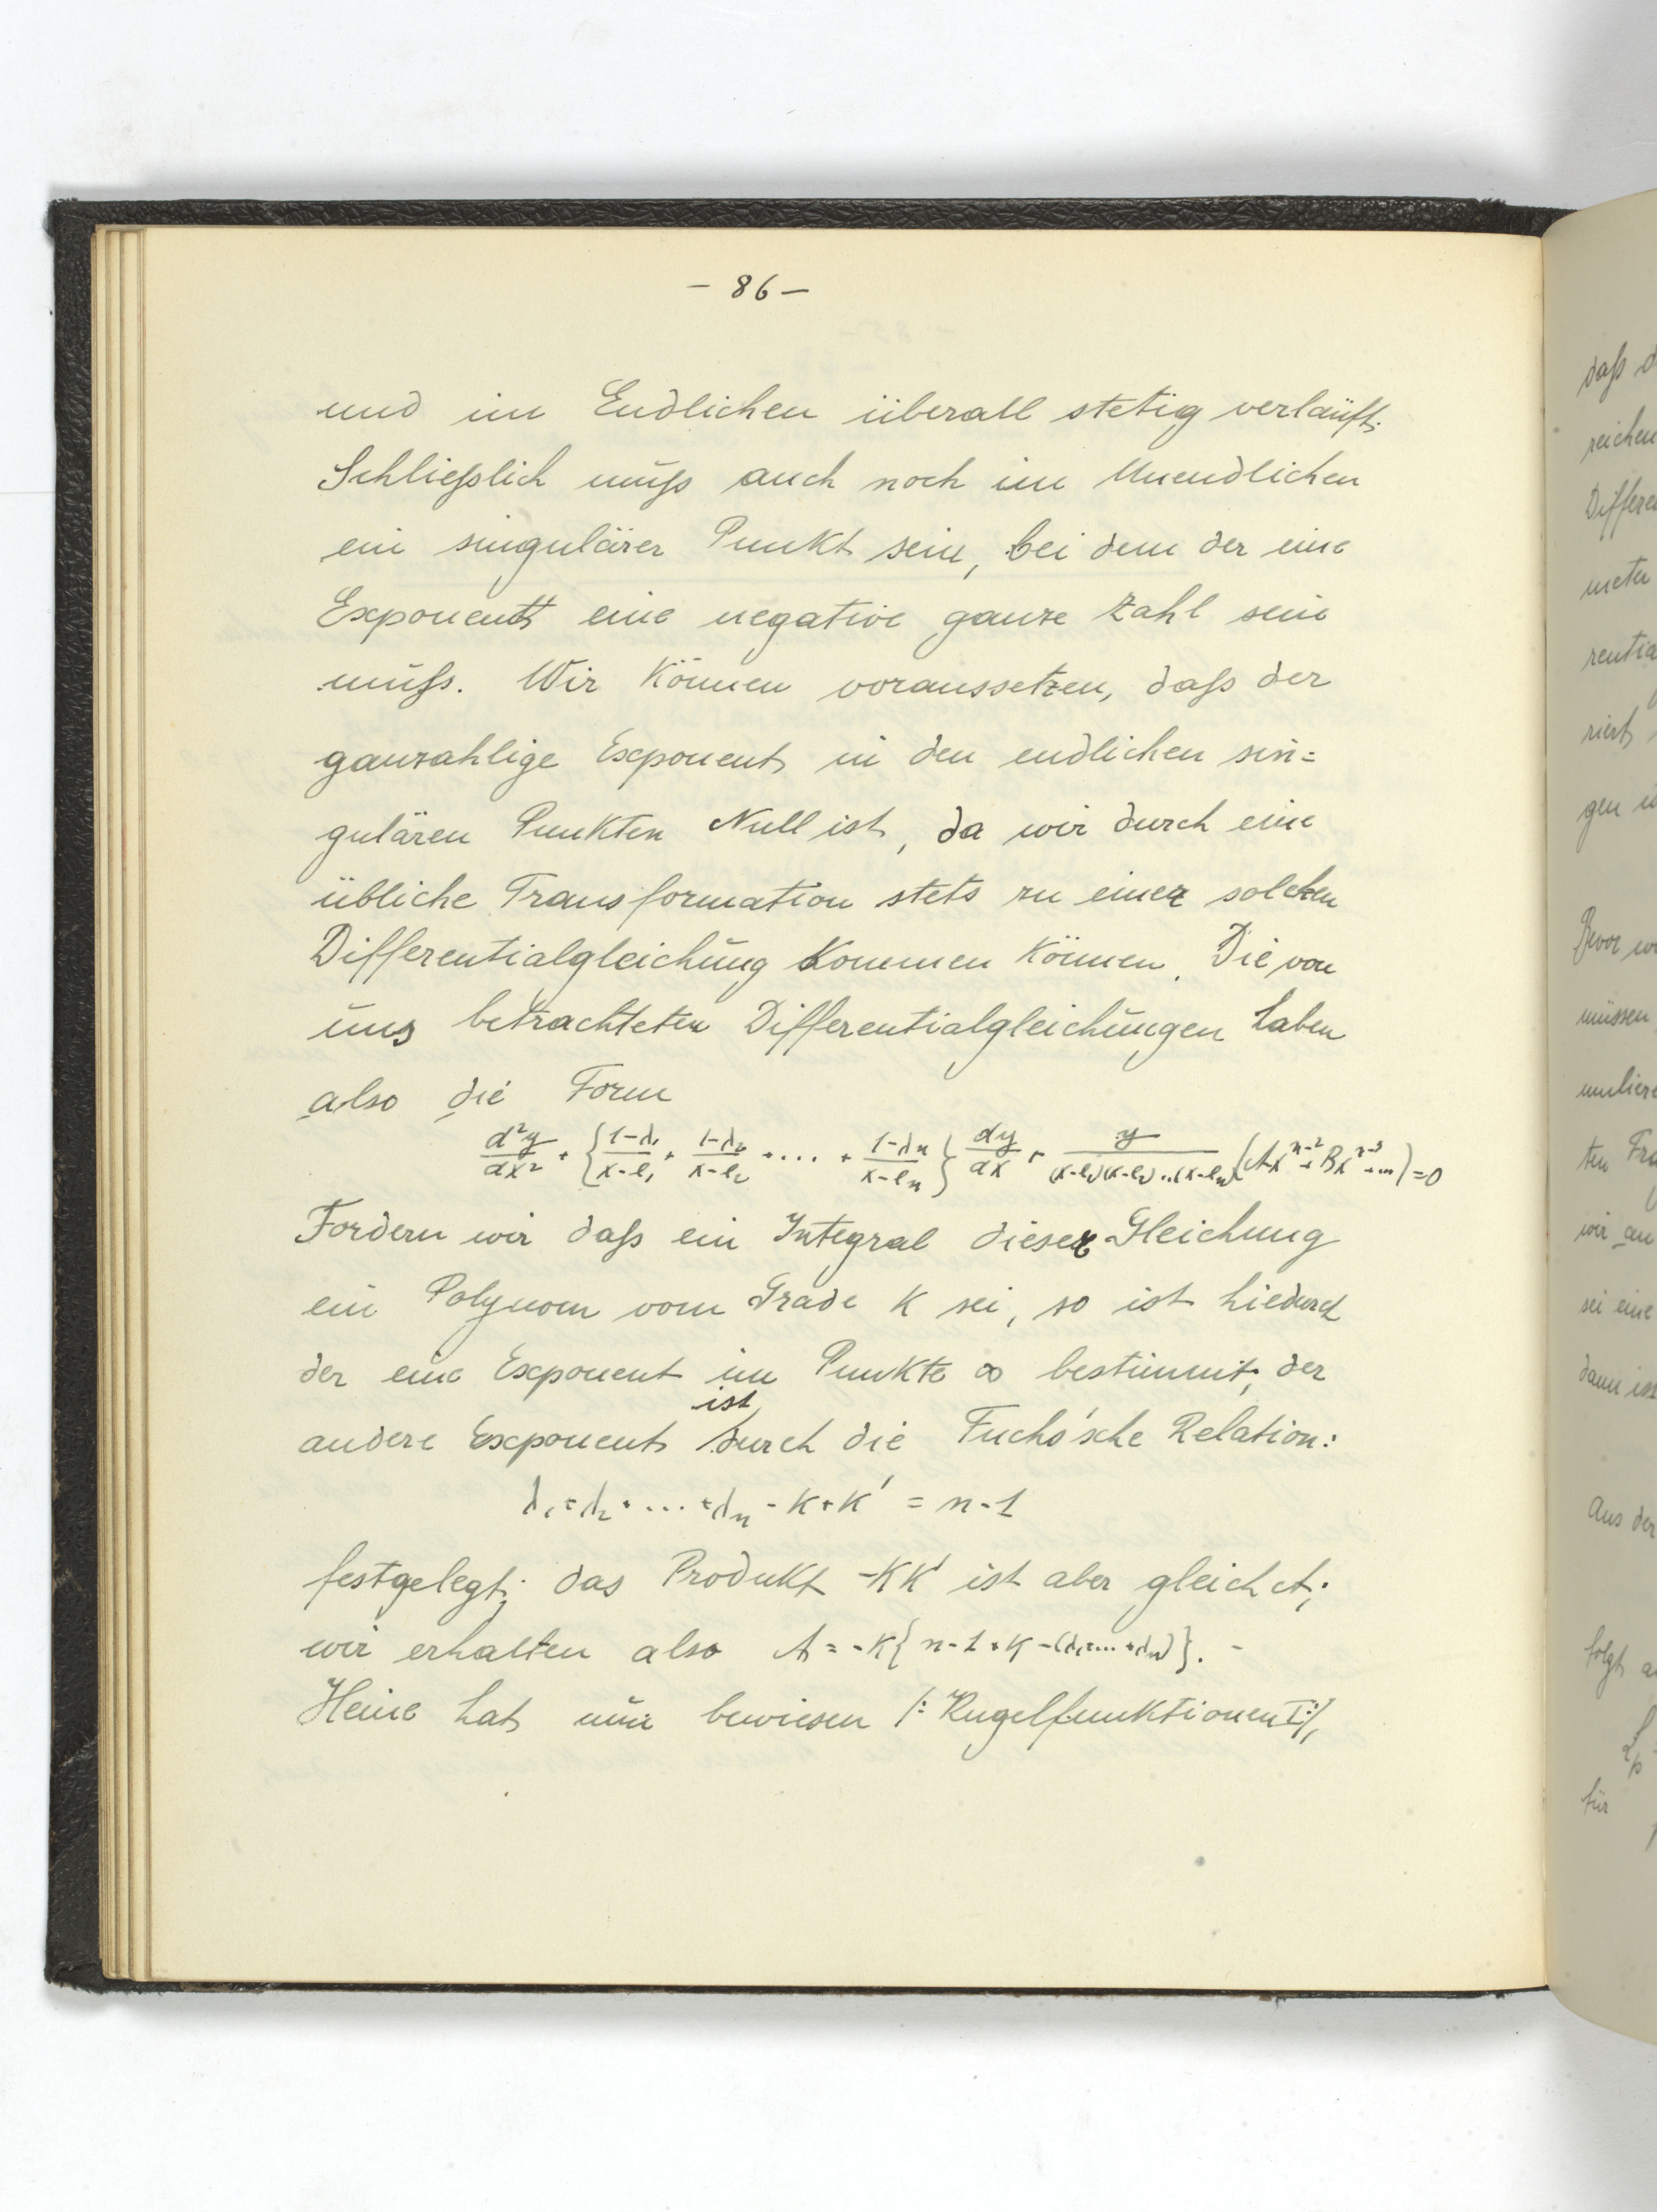 – 86 –
und im Endlichen überall stetig verläuft.
Schließlich muß auch noch im Unendlichen
ein singulärer Punkt sein, bei dem der eine
Exponent eine negative ganze Zahl sein
muß. Wir können voraussetzen, daß der
ganzahlige Exponent in den endlichen sin=
gulären Punkten Null ist, da wir durch eine
übliche Transformation stets zu einer solchen
Differentialgleichung kommen können. Die von
uns betrachteten Differentialgleichungen haben
also die Form
d²y/dx² + {(1-λ₁)/(x-e₁) + (1-λ₂)/(x-e₂) + .... + (1-λₙ)/(x-eₙ)} dy/dx + y/((x-e₁)(x-e₂)...(x-eₙ)) (Axⁿ⁻² + Bxⁿ⁻³ + ...) = 0
Fordern wir daß ein Integral dieser Gleichung
ein Polynom vom Grade k sei, so ist hiedurch
der eine Exponent im Punkte ∞ bestimmt; der
andere Exponent ist durch die Fuchs'sche Relation:
λ₁ + λ₂ + .... + λₙ - k + k' = n - 1
festgelegt; das Produkt -kk' ist aber gleich A;
wir erhalten also A = -k{n-1+k-(λ₁+...+λₙ)}. –
Heine hat nun bewiesen /: Kugelfunktionen I :/,
daß
reichen
müssen
ten
wir an
sei eine
dann ist
Aus der
folgt
für